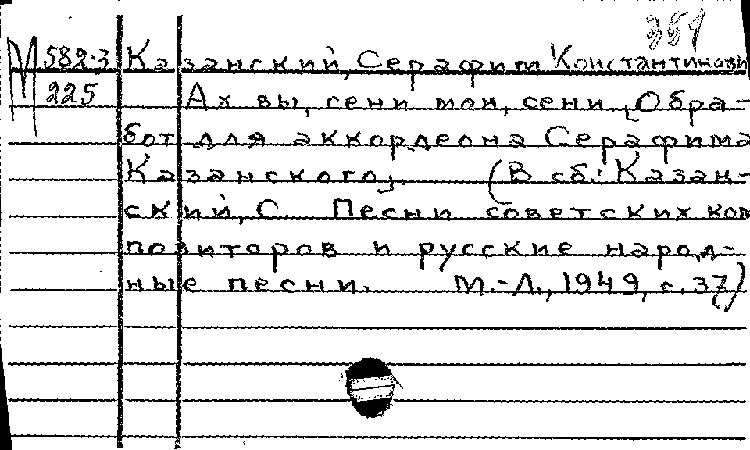 351
М 582-3 Казанский, Серафим Константинови
225 Ах вы, сени мои, сени [Обра-
бот. для аккордеона Серафима
Казанского]. (В сб.: Казан-
ский, С. Песни советских ком
позиторов и русские народ-
ные песни. М.-Л., 1949, с. 37)